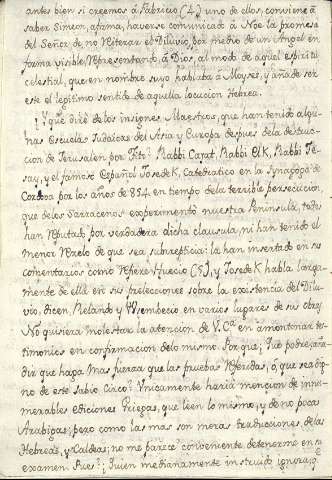 antes bien si creemos â Fabricio (4) uno de ellos, conviene â
saber Simeon, afirma, haverse comunicado â Noe la promesa
del Señor de no reiterar el Diluvio, por medio de un Angel en
forma visible, representando â Dios, al modo de aquel espiritu
celestial, que en nombre suyo hablaba â Moyses, y añade ser
este el legitimo sentido de aquella locucion Hebrea.
¿Y què dirè de los insignes Maestros, que han tenido algu-
nas Escuelas Judaicas del Asia y Europa despues de la destruc-
cion de Jerusalen por Tito? Rabbi Rabbi Rabbi
say, y el famoso Español Josedek, Catedratico en la Synagoga de
Cordova por los años de 854. en tiempo de la terrible persecucion,
que de los Sarracenos experimentò nuestra Peninsula, todos
han reputado por verdadera dicha clausula, ni han tenido el
menor recelo de que sea subrepticia: la han insertado en sus
comentarios como refiere Huecio (5), y Josedek habla larga-
mente de ella en sus prelecciones sobre la existencia del Dilu-
vio, dicen, Relando y en varios lugares de sus obras.
No quisiera molestar la atencion de V. en amontonar tes-
timonios en confirmacion de lo mismo. Por que ¿Què podre aña-
dir que haga mas fuerza que las pruebas referidas, ò, que sea dig-
no de este Sabio Circo? Unicamente haria mencion de innu-
merables ediciones Griegas, que leen lo mismo, y de no pocas
Arabigas; pero como las mas son meras traducciones de las
Hebreas, y Caldeas; no me parece conveniente detenerme en su
examen. Pues? ¿Quien medianamente instruido ignora, q.e